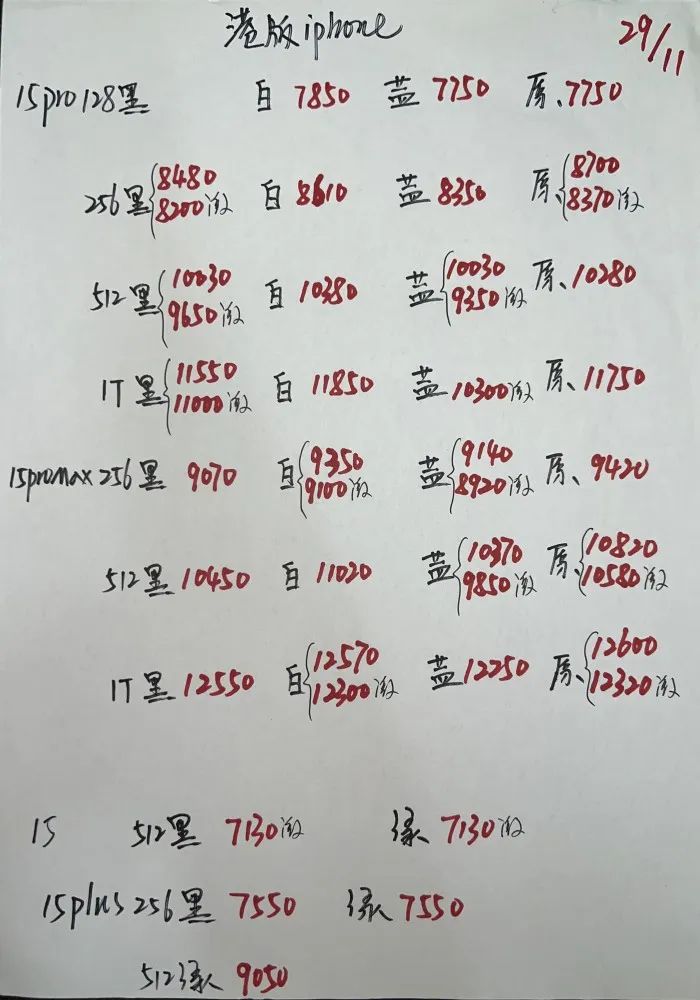 港版iphone 29/11
15pro 128黑 白 7850 蓝 7750 原、7750
256黑{8480 8200激 白 8610 蓝 8350 原、{8700 8370激
512黑{10030 9650激 白 10380 蓝{10030 9350激 原、10280
1T 黑{11550 11000激 白 11850 蓝 10300激 原、11750
15promax 256黑 9070 白{9350 9100激 蓝{9140 8920激 原、9420
512黑 10450 白 11020 蓝{10370 9850激 原、{10820 10580激
1T 黑 12550 白{12570 12300激 蓝 12250 原、{12600 12320激
15 512黑 7130激 绿 7130激
15plus 256黑 7550 绿 7550
512绿 9050